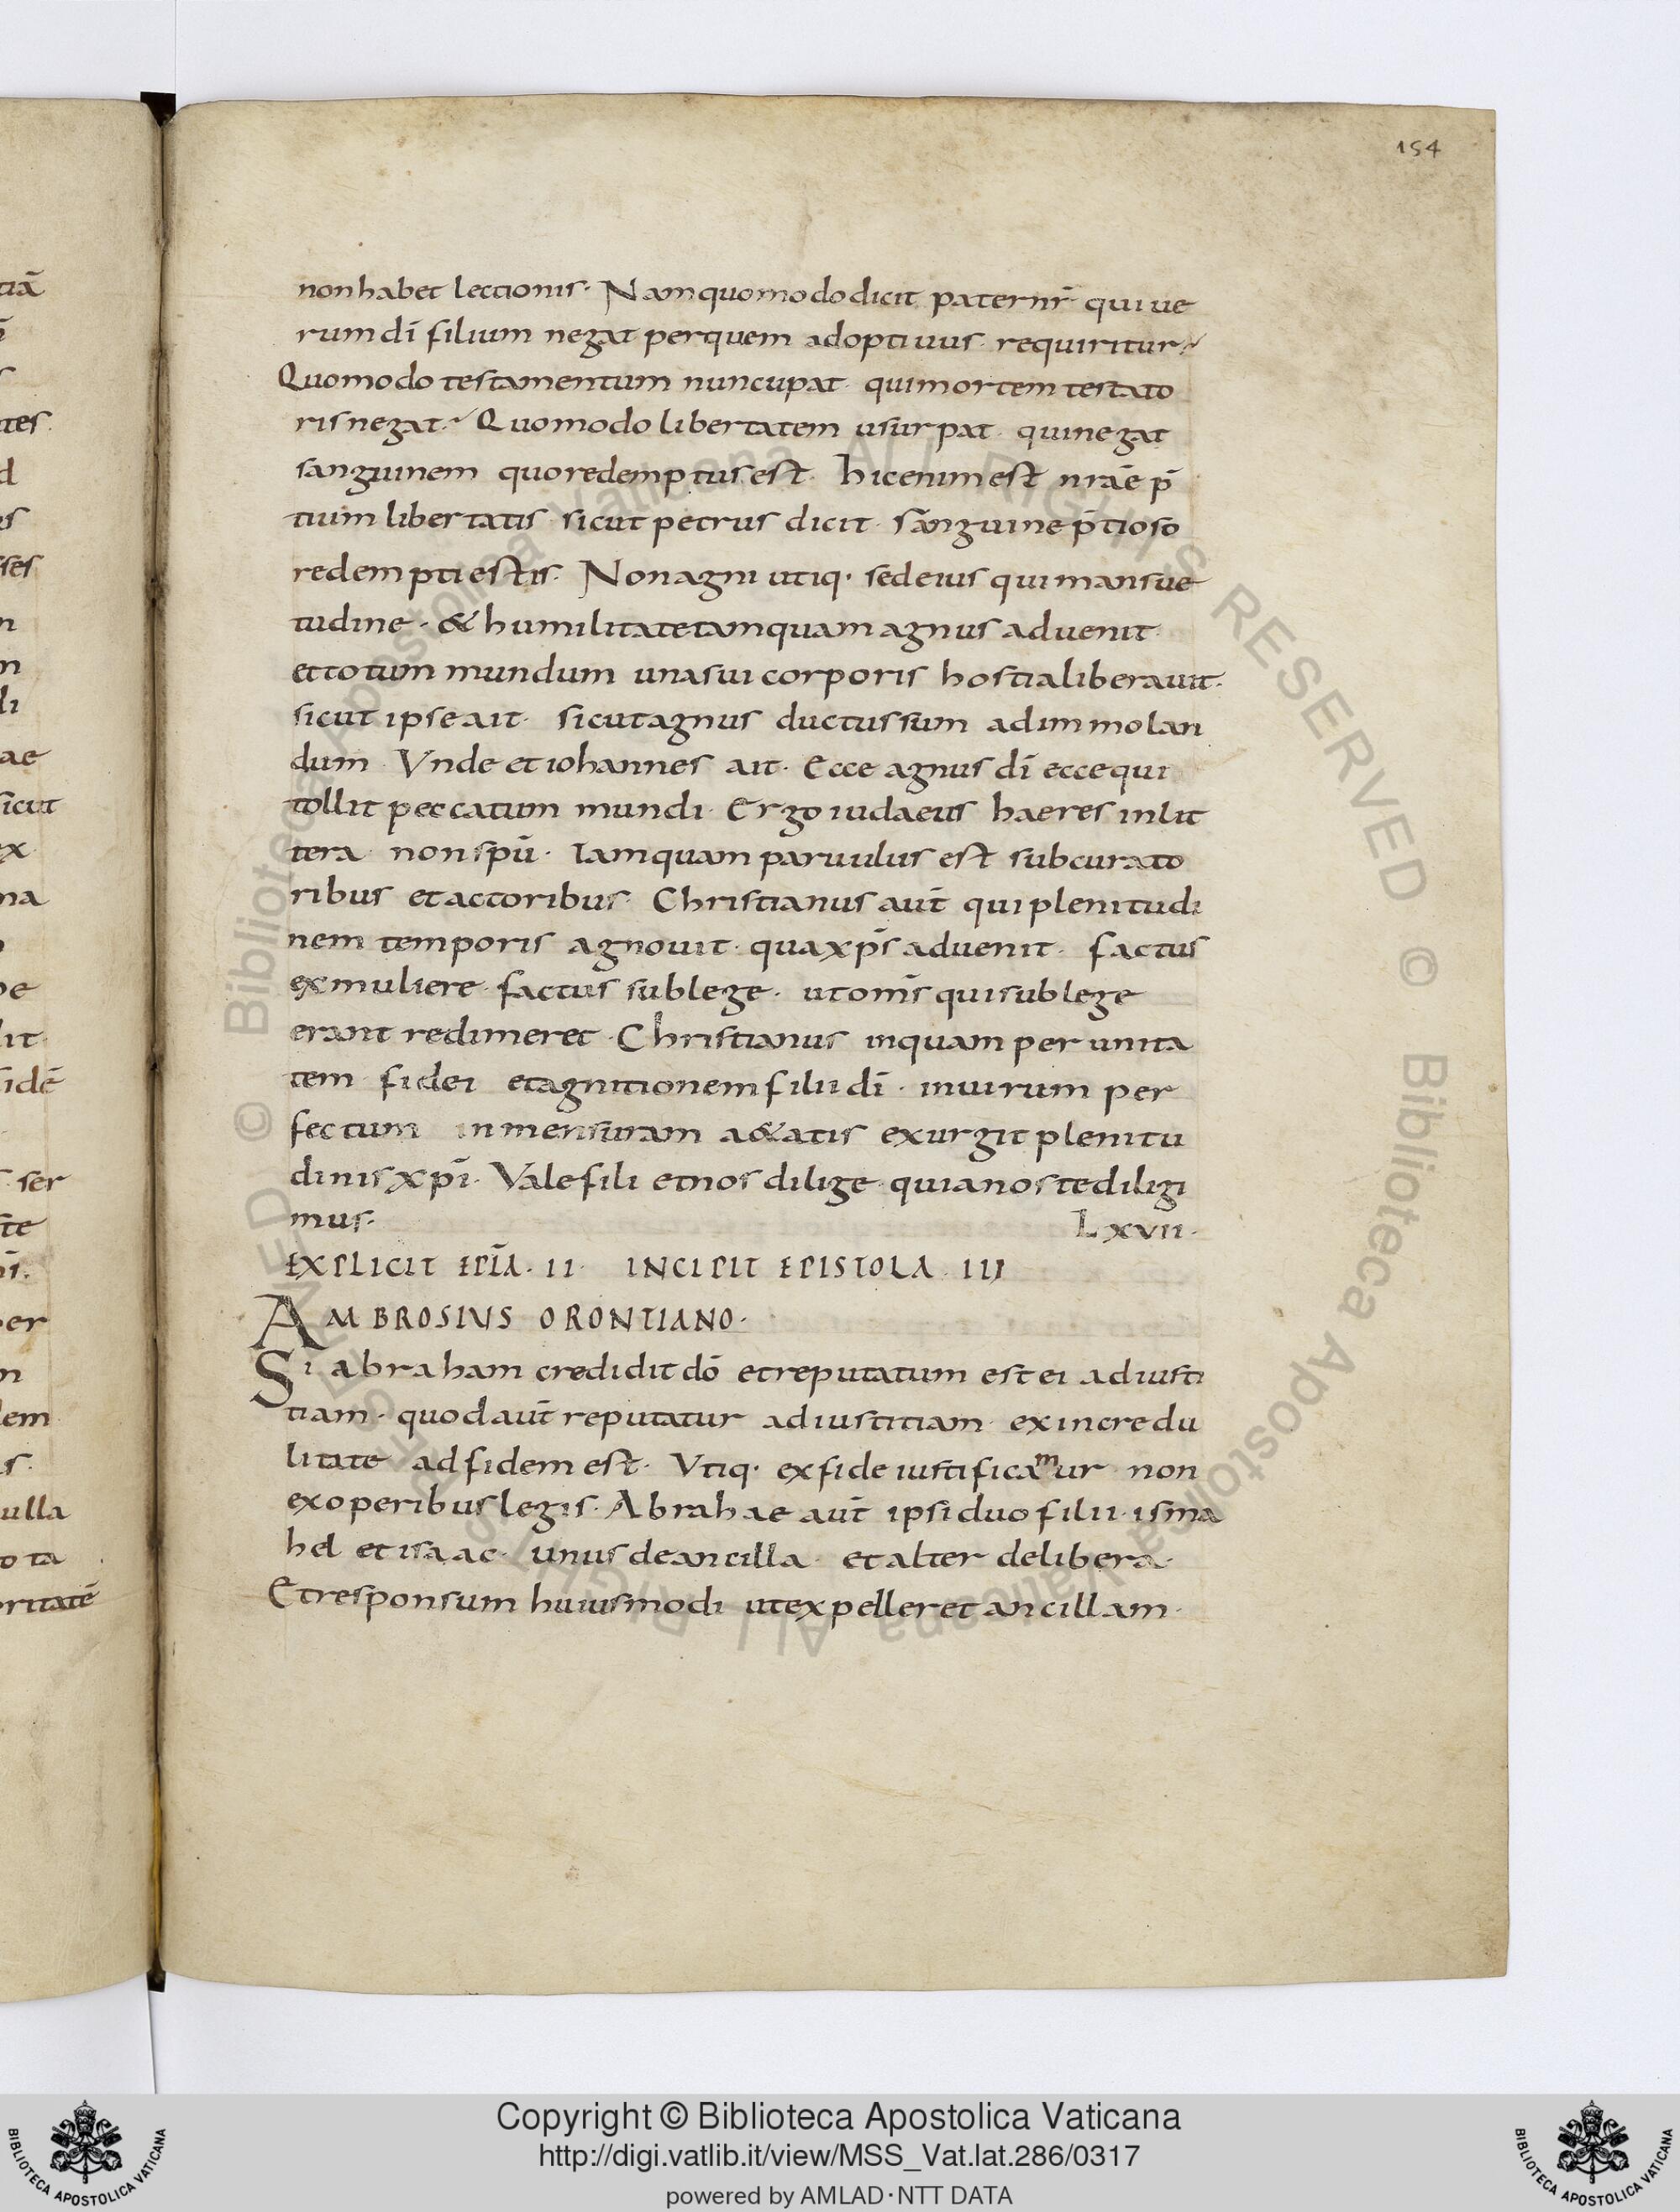 154
non habet lectionis · Nam quomodo dicit pater nr̄ · qui ue
rum dī filium negat per quem adoptiuus · requiritur ·
Quomodo testamentum nuncupat · qui mortem testato
ris negat · Quomodo libertatem usurpat · qui negat
sanguinem quo redemptus est · hic enim est nrāe p̄
tium libertatis · sicut petrus dicit · sanguine p̄tioso
redempti estis · Non agni utiq· sed eius qui mansue
tudine · & humilitate tamquam agnus aduenit ·
et totum mundum una sui corporis hostia liberauit ·
sicut ipse ait · sicut agnus ductus sum ad immolan
dum · Vnde et iohannes ait · Ecce agnus dī ecce qui
tollit peccatum mundi · Ergo iudaeus haeres in lit
tera non spū · Iamquam paruulus est sub curato
ribus et actoribus · Christianus aut̄ qui plenitudi
nem temporis agnouit · qua xp̄s aduenit · factus
ex muliere · factus sub lege · ut om̄s qui sub lege
erant redimeret · Christianus inquam per unita
tem fidei et agnitionem filii dī · in uirum per
fectum in mensuram a&atis exurgit plenitu
dinis xp̄i · Vale fili et nos dilige quia nos te diligi
mus · Lxvii ·
EXPLICIT EPLĀ · II · INCIPIT EPISTOLA · III
AMBROSIVS ORONTIANO ·
Si abraham credidit dō et reputatum est ei ad iusti
tiam · quod aut̄ reputatur ad iustitiam ex incredu
litate ad fidem est · Vtiq· ex fide iustificamur non
ex operibus legis · Abrahae aut̄ ipsi duo filii · isma
hel et isaac · unus de ancilla · et alter de libera ·
Et responsum huiusmodi ut expelleret ancillam ·
tiā
tes
d
ses
n
li
ae
sicut
ex
na
lit
fidē
ser
te
er
n
lem
ulla
ta
oritatē
© Biblioteca Apostolica Vaticana ALL RIGHTS RESERVED © Biblioteca Apostolica Vaticana ALL RIGHTS RESERVED
Copyright © Biblioteca Apostolica Vaticana
http://digi.vatlib.it/view/MSS_Vat.lat.286/0317
powered by AMLAD·NTT DATA
BIBLIOTECA APOSTOLICA VATICANA
BIBLIOTECA APOSTOLICA VATICANA